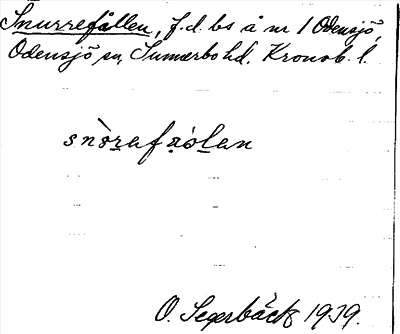 Snurrefållen, f.d. bs å nr 1 Odensjö,
Odensjö sn, Sunnerbo hd. Kronob. l.
snòrafaólan
O. Segerbäck 1939.